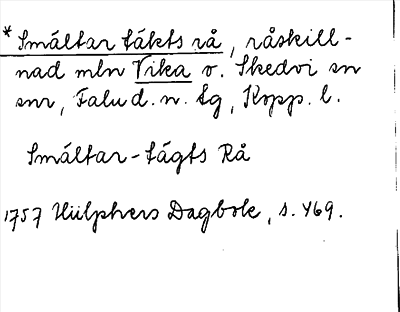 * Smáltar täkts rå, råskill-
nad mln Vika o. Skedvi sn
snr, Falu d. n. Lg, Kopp. l.
Smáltar-tägts Rå
1757 Hülphers Dagbok, s. 469.